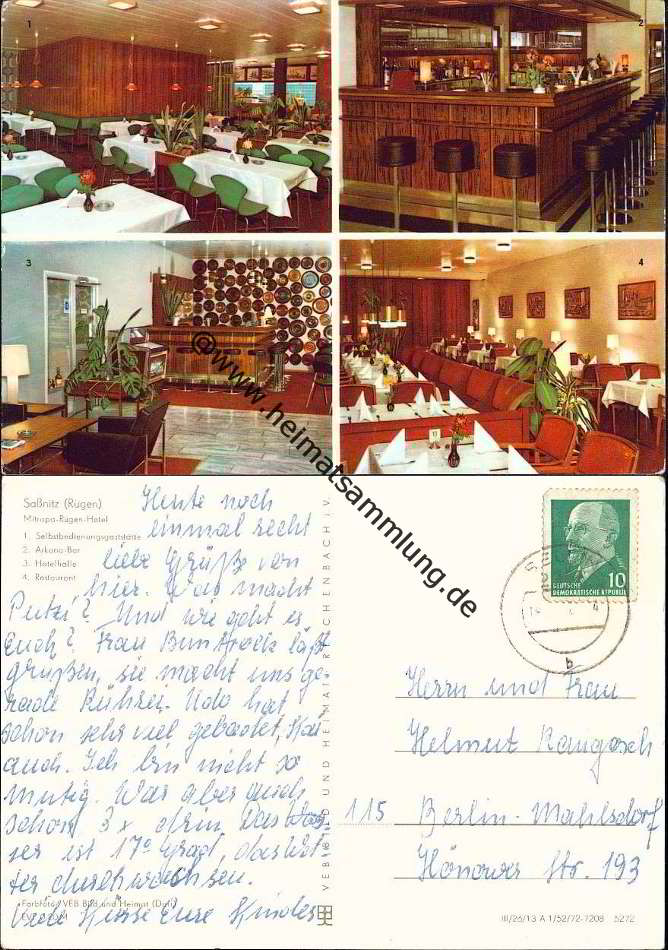 1
2
3
4
Saßnitz (Rügen)
Mitropa-Rügen-Hotel
1. Selbstbedienungsgaststätte
2. Arkona-Bar
3. Hotelhalle
4. Restaurant
Heute noch
einmal recht
liebe Grüße von
hier. Was macht
Putzi? Und wie geht es
Euch? Frau läßt
grüßen, sie macht uns ge-
rade Rührei. Udo hat
schon sehr viel gebadet, Kai
auch. Ich bin nicht so
mutig. War aber auch
schon 3x drin. Das Was-
ser ist 17° Grad, das Wet-
ter durchwachsen.
Viele Küsse Eure Kinder
Farbfotos: VEB Bild und Heimat
VEB BILD UND HEIMAT REICHENBACH I. V.
10
DEUTSCHE
DEMOKRATISCHE REPUBLIK
b
Herrn und Frau
Helmut
115 Berlin-Mahlsdorf
Hönower Str. 193
III/26/13 A 1/52/72-7208 5272
@www.heimatsammlung.de